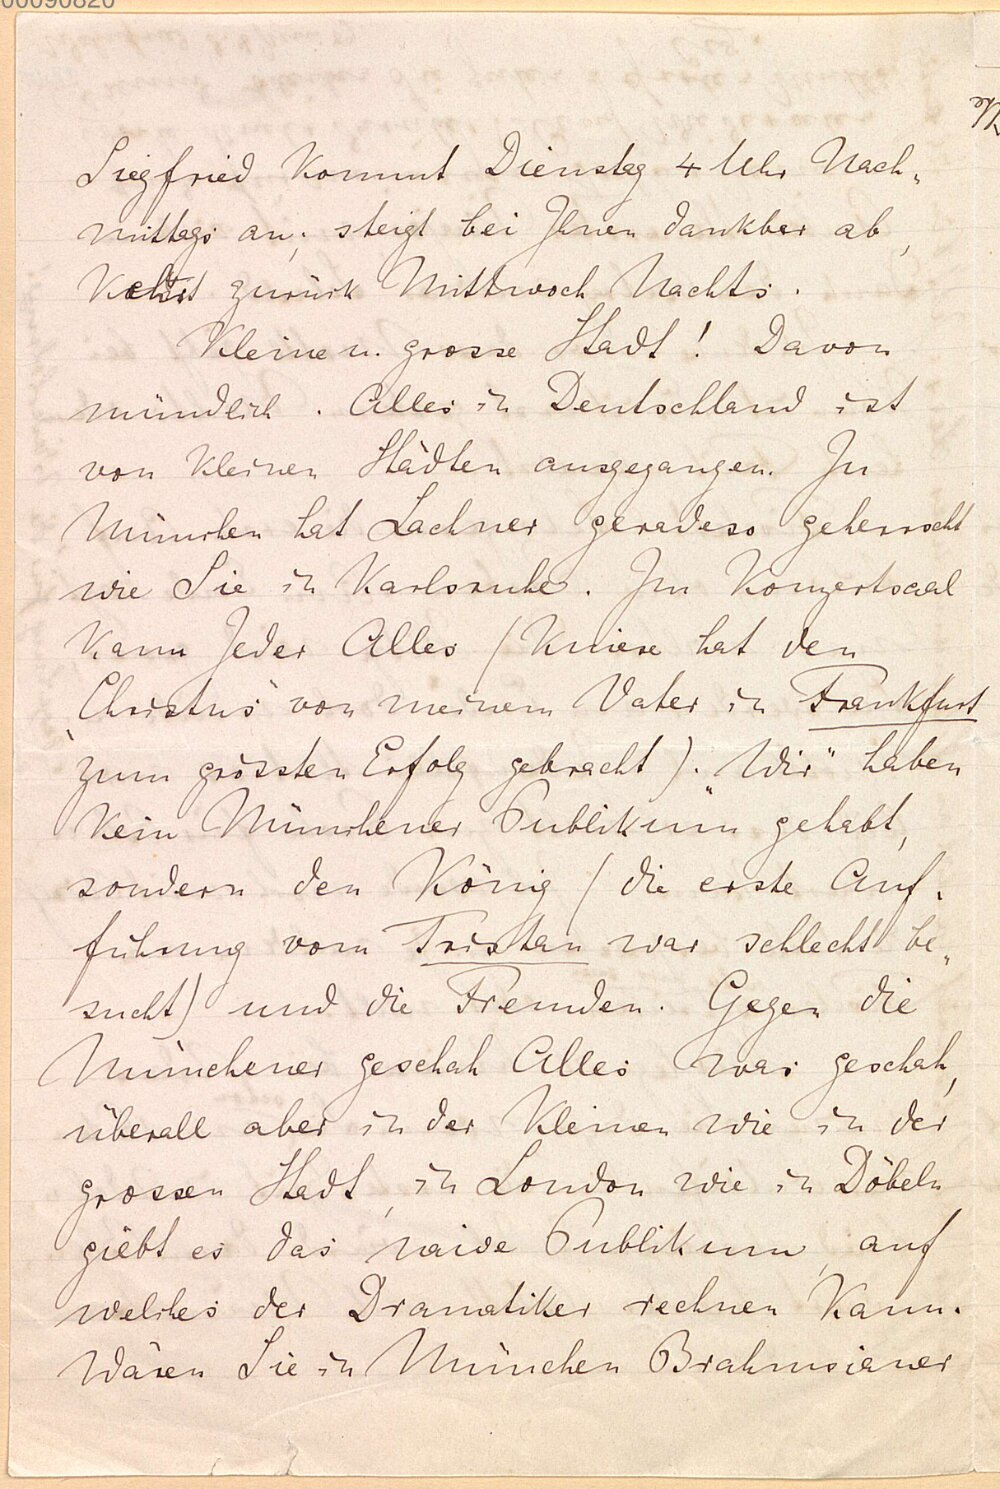 00090820
Siegfried kommt Dienstag 4 Uhr Nach-
mittags an; steigt bei Ihnen dankbar ab,
kehrt zurück Mittwoch Nachts.
Kleine u. grosse Stadt! Davon
mündlich. Alles in Deutschland ist
von kleinen Städten ausgegangen. In
München hat Lachner geradeso geherrscht
wie Sie in Karlsruhe. Im Konzertsaal
kann Jeder Alles (Kniese hat den
Christus von meinem Vater in Frankfurt
zum grössten Erfolg gebracht). „Wir“ haben
kein Münchener Publikum gehabt,
sondern den König (die erste Auf-
führung vom Tristan war schlecht be-
sucht) und die Fremden. Gegen die
Münchener geschah Alles was geschah,
überall aber in der kleinen wie in der
grossen Stadt, in London wie in Döbeln
giebt es das naive Publikum, auf
welches der Dramatiker rechnen kann.
Wären Sie in München Brahmsianer